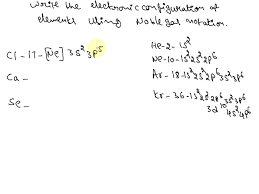 Write the electronic configuration of
elements using Noble gas notation.
Cl - 17 - [Ne] 3s² 3p⁵
Ca -
Se -
He - 2 - 1s²
Ne - 10 - 1s² 2s² 2p⁶
Ar - 18 - 1s² 2s² 2p⁶ 3s² 3p⁶
Kr - 36 - 1s² 2s² 2p⁶ 3s² 3p⁶
3d¹⁰ 4s² 4p⁶